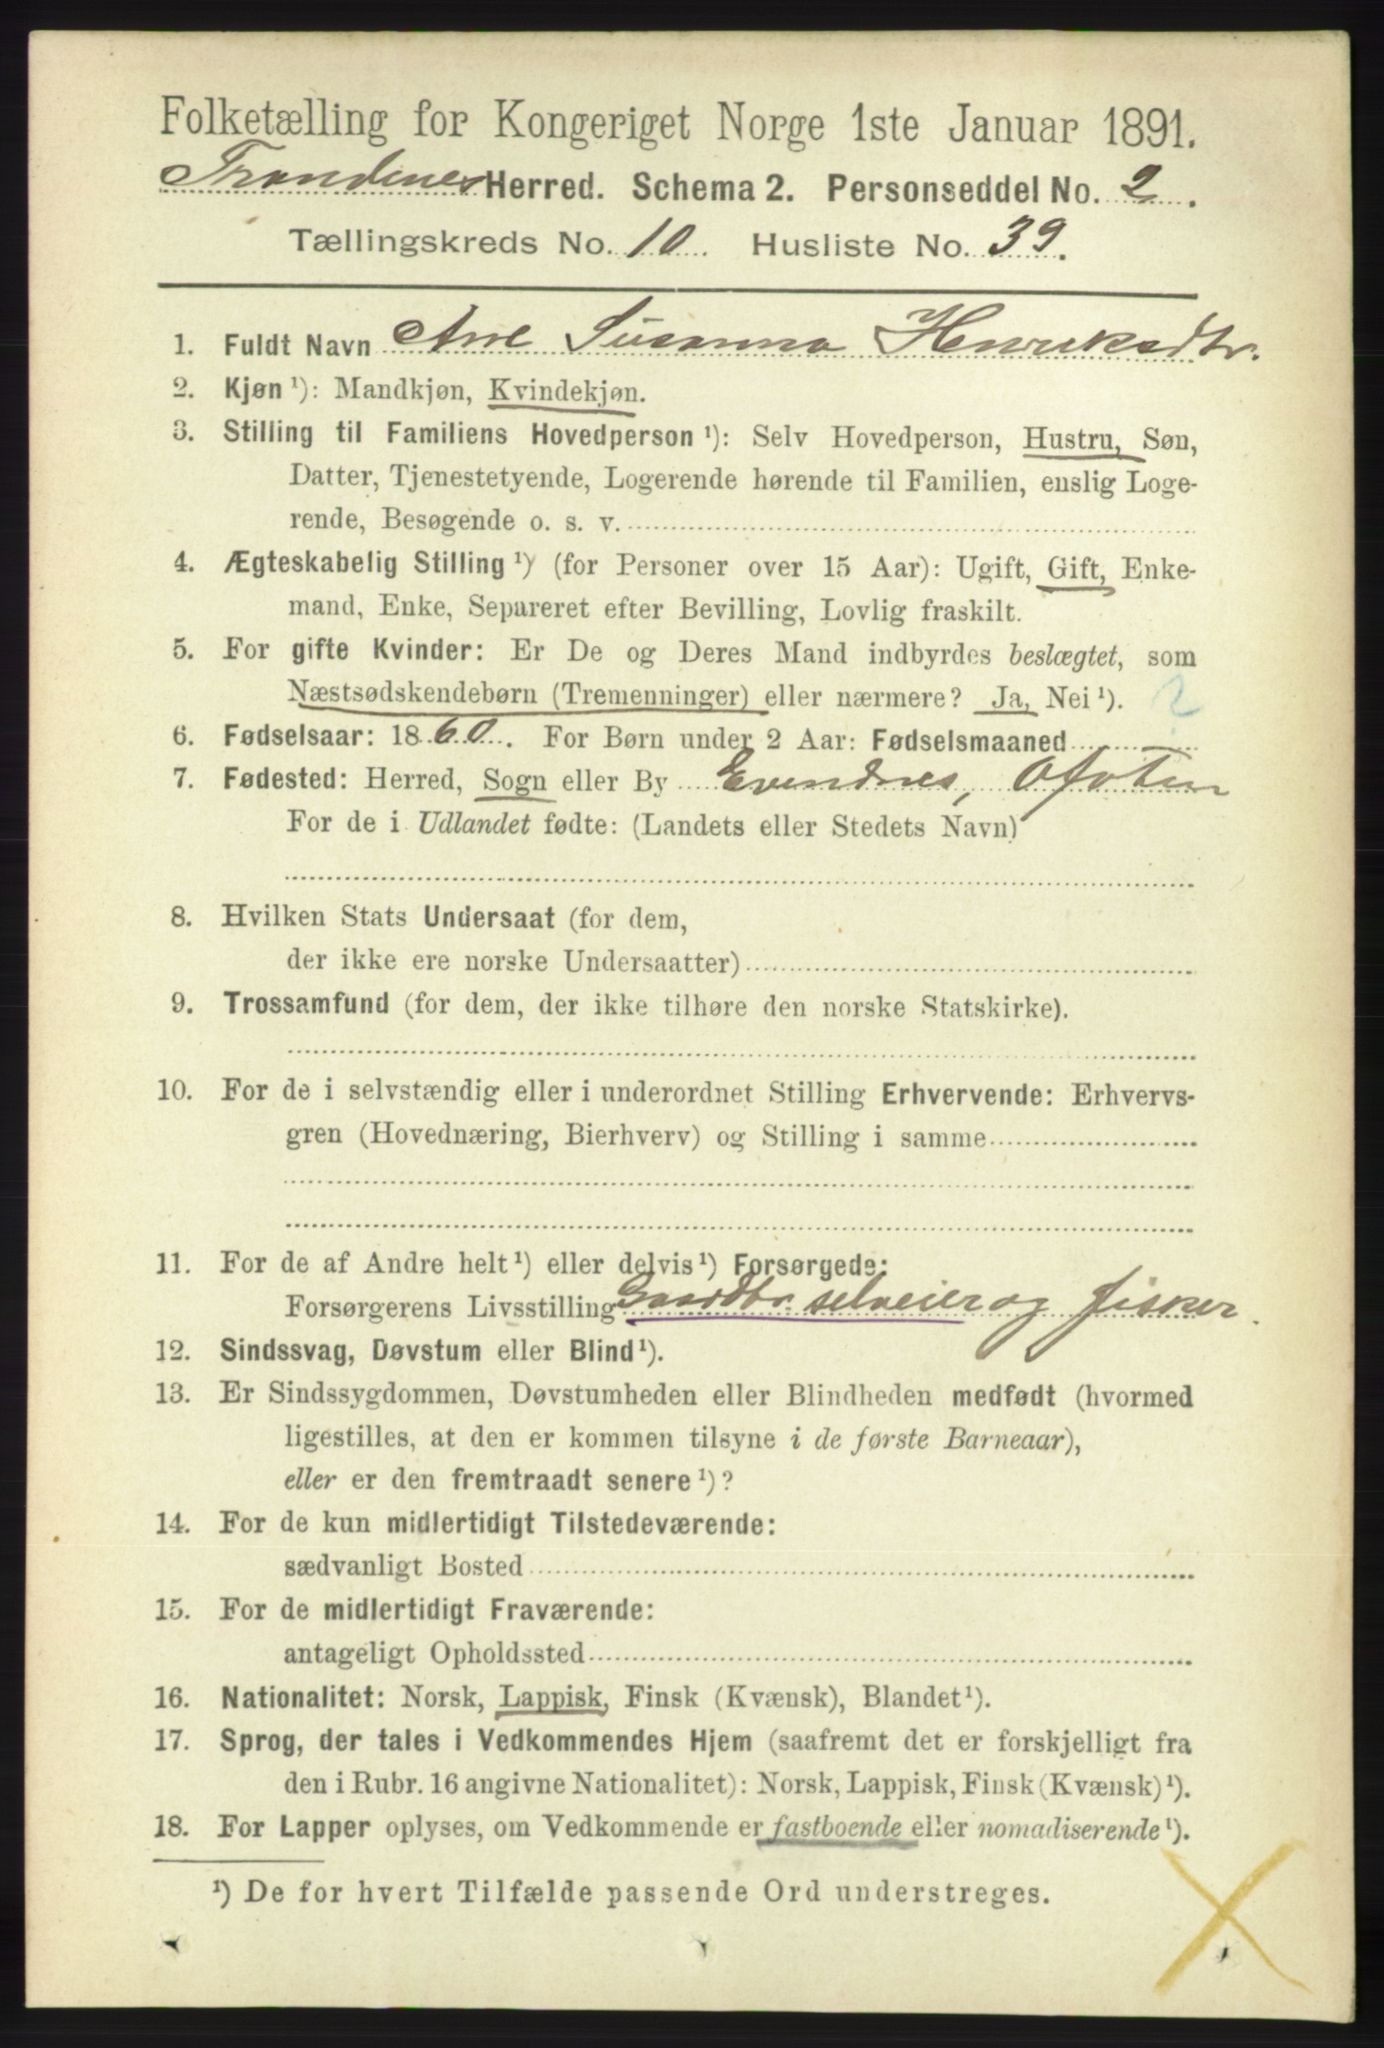 Folketælling for Kongeriget Norge 1ste Januar 1891.
Trondenes Herred. Schema 2. Personseddel No. 2.
Tællingskreds No. 10. Husliste No. 39.
1. Fuldt Navn Ane Susanna Henriksdtr.
2. Kjøn ¹): Mandkjøn, Kvindekjøn.
3. Stilling til Familiens Hovedperson ¹): Selv Hovedperson, Hustru, Søn,
Datter, Tjenestetyende, Logerende hørende til Familien, enslig Loge-
rende, Besøgende o. s. v.
4. Ægteskabelig Stilling ¹) (for Personer over 15 Aar): Ugift, Gift, Enke-
mand, Enke, Separeret efter Bevilling, Lovlig fraskilt.
5. For gifte Kvinder: Er De og Deres Mand indbyrdes beslægtet, som
Næstsødskendebørn (Tremenninger) eller nærmere? Ja, Nei ¹). 2
6. Fødselsaar: 1860. For Børn under 2 Aar: Fødselsmaaned
7. Fødested: Herred, Sogn eller By Evendnes, Ofoten
For de i Udlandet fødte: (Landets eller Stedets Navn)
8. Hvilken Stats Undersaat (for dem,
der ikke ere norske Undersaatter)
9. Trossamfund (for dem, der ikke tilhøre den norske Statskirke).
10. For de i selvstændig eller i underordnet Stilling Erhvervende: Erhvervs-
gren (Hovednæring, Bierhverv) og Stilling i samme
11. For de af Andre helt ¹) eller delvis ¹) Forsørgede:
Forsørgerens Livsstilling Gaardbr. selveier og fisker.
12. Sindssvag, Døvstum eller Blind ¹).
13. Er Sindssygdommen, Døvstumheden eller Blindheden medfødt (hvormed
ligestilles, at den er kommen tilsyne i de første Barneaar),
eller er den fremtraadt senere ¹)?
14. For de kun midlertidigt Tilstedeværende:
sædvanligt Bosted
15. For de midlertidigt Fraværende:
antageligt Opholdssted
16. Nationalitet: Norsk, Lappisk, Finsk (Kvænsk), Blandet ¹).
17. Sprog, der tales i Vedkommendes Hjem (saafremt det er forskjelligt fra
den i Rubr. 16 angivne Nationalitet): Norsk, Lappisk, Finsk (Kvænsk) ¹).
18. For Lapper oplyses, om Vedkommende er fastboende eller nomadiserende ¹).
¹) De for hvert Tilfælde passende Ord understreges.